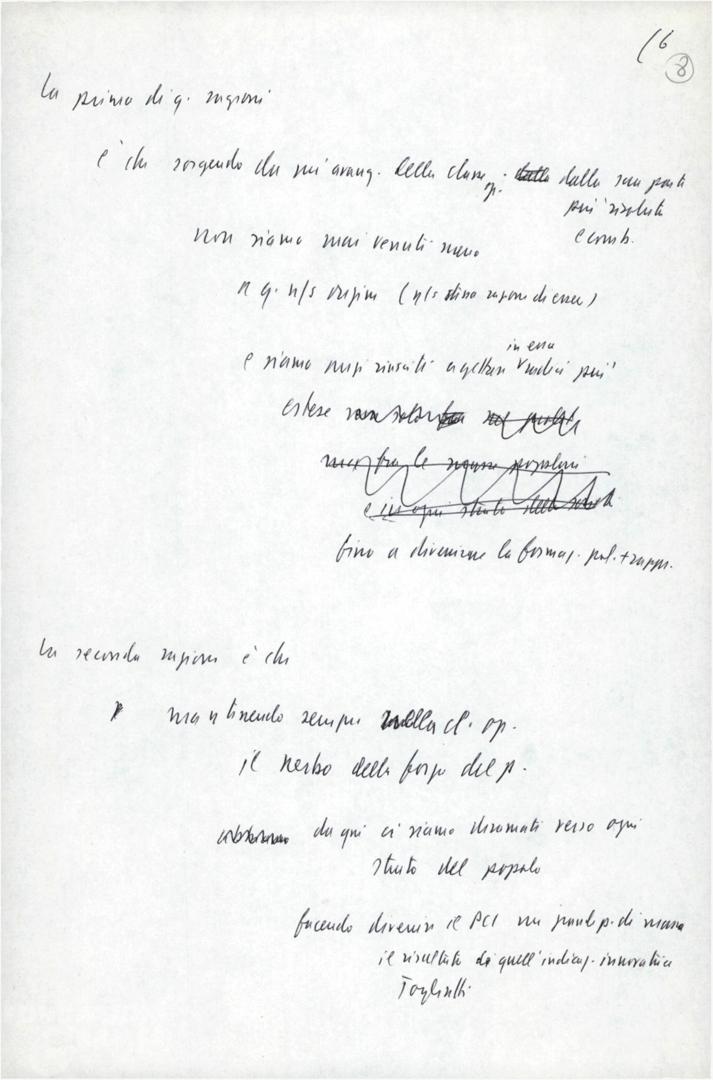 16
8
La prima di q. ragioni
è che sorgendo da un'avang. della classe op. dalla sua parte
più risoluta
e comb.
non siamo mai venuti meno
a q. n/s origine (n/s stessa ragione di essere)
in essa
e siamo riusciti a gettare radici più
estese
ma fra le masse popolari
e in ogni strato della società
fino a divenire la formaz. pol. + rappr.
La seconda ragione è che
mantenendo sempre nella cl. op.
il nerbo della forza del p.
da qui ci siamo diramati verso ogni
strato del popolo
facendo divenire il PCI un grande p. di massa
il risultato di quell'indicaz. innovatrice
Togliatti